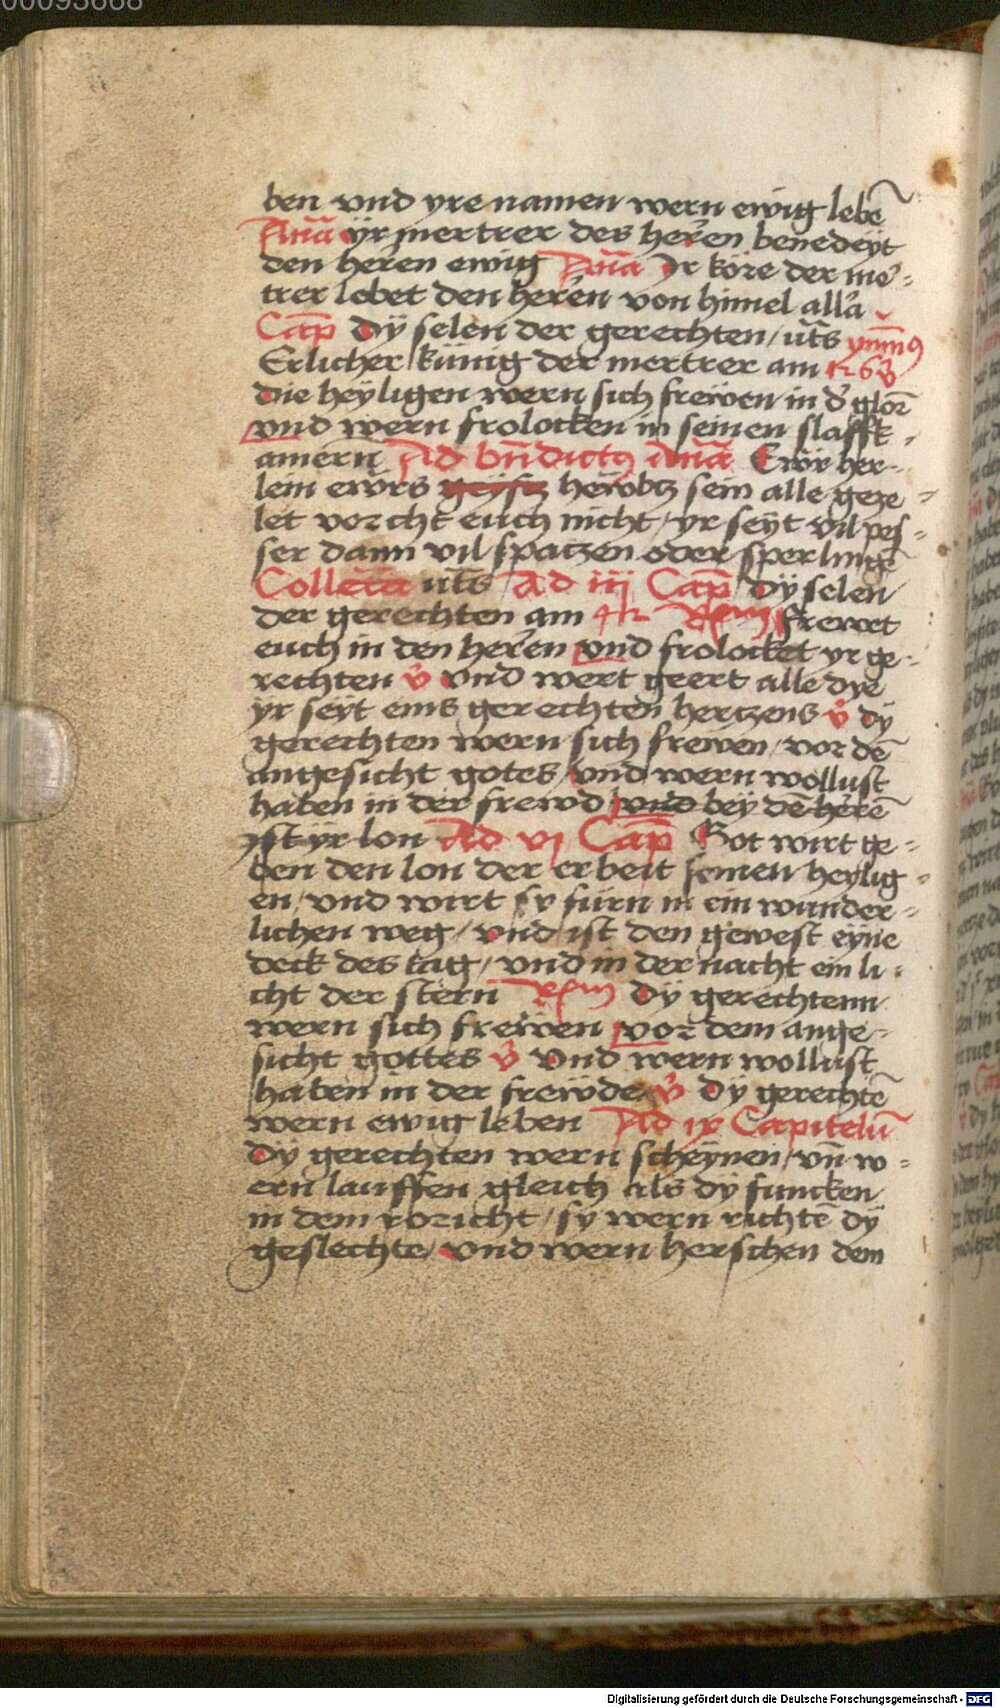 00093668
ben vnd yre namen wern ewig lebē
Anā yr mertrer des herren benedeyt
den herren ewig Anā Ir köre der me-
trer lobet den herren von himel alla
Cap̄ dÿ selen der gerechten / ut̄s ymn9
Erlicher künig der mertrer am 126 v̓
die heyligen wern sich frewen in d̓ glor̄
vnd wern frolocken in seinen slaffk-
amern Ad bn̄dictus Anā Ewr her-
lein ewrs hewbtz sein alle geze-
let vorcht euch nicht / yr seyt vil pes-
ser dann vil spatzen oder sperlinge
Collecta ut̄s Ad iij Cap̄ dÿ selen
der gerechten am Rsm̄ frewt
euch in den herren vnd frolocket yr ge-
rechten v̓ vnd wert geert alle dye
yr seyt eins gerechten hertzens v̓ dÿ
gerechten wern sich frewen / vor dē
angesicht gotes / vnd wern wollust
haben in der frewd vnd bey dē herē
ist yr lon Ad vj Cap̄ Got wirt ge-
ben den lon der erbeit seinen heylig-
en / vnd wirt sy fürn in ein wunder-
lichen weg / vnd ist den gewest eyne
deck des tag / vnd in der nacht ein li-
cht der stern Rsm̄ dÿ gerechtenn
wern sich frewen vor dem ange-
sicht gottes v̓ vnd wern wollust
haben in der frewde v̓ dÿ gerechtē
wern ewig leben Ad ix Capitelū
dÿ gerechten wern scheynen / vn̄ w-
ern lauffen gleich als dÿ funcken
in dem roricht / sy wern richtē dÿ
geslechte / vnd wern herschen dem
Digitalisierung gefördert durch die Deutsche Forschungsgemeinschaft - DFG